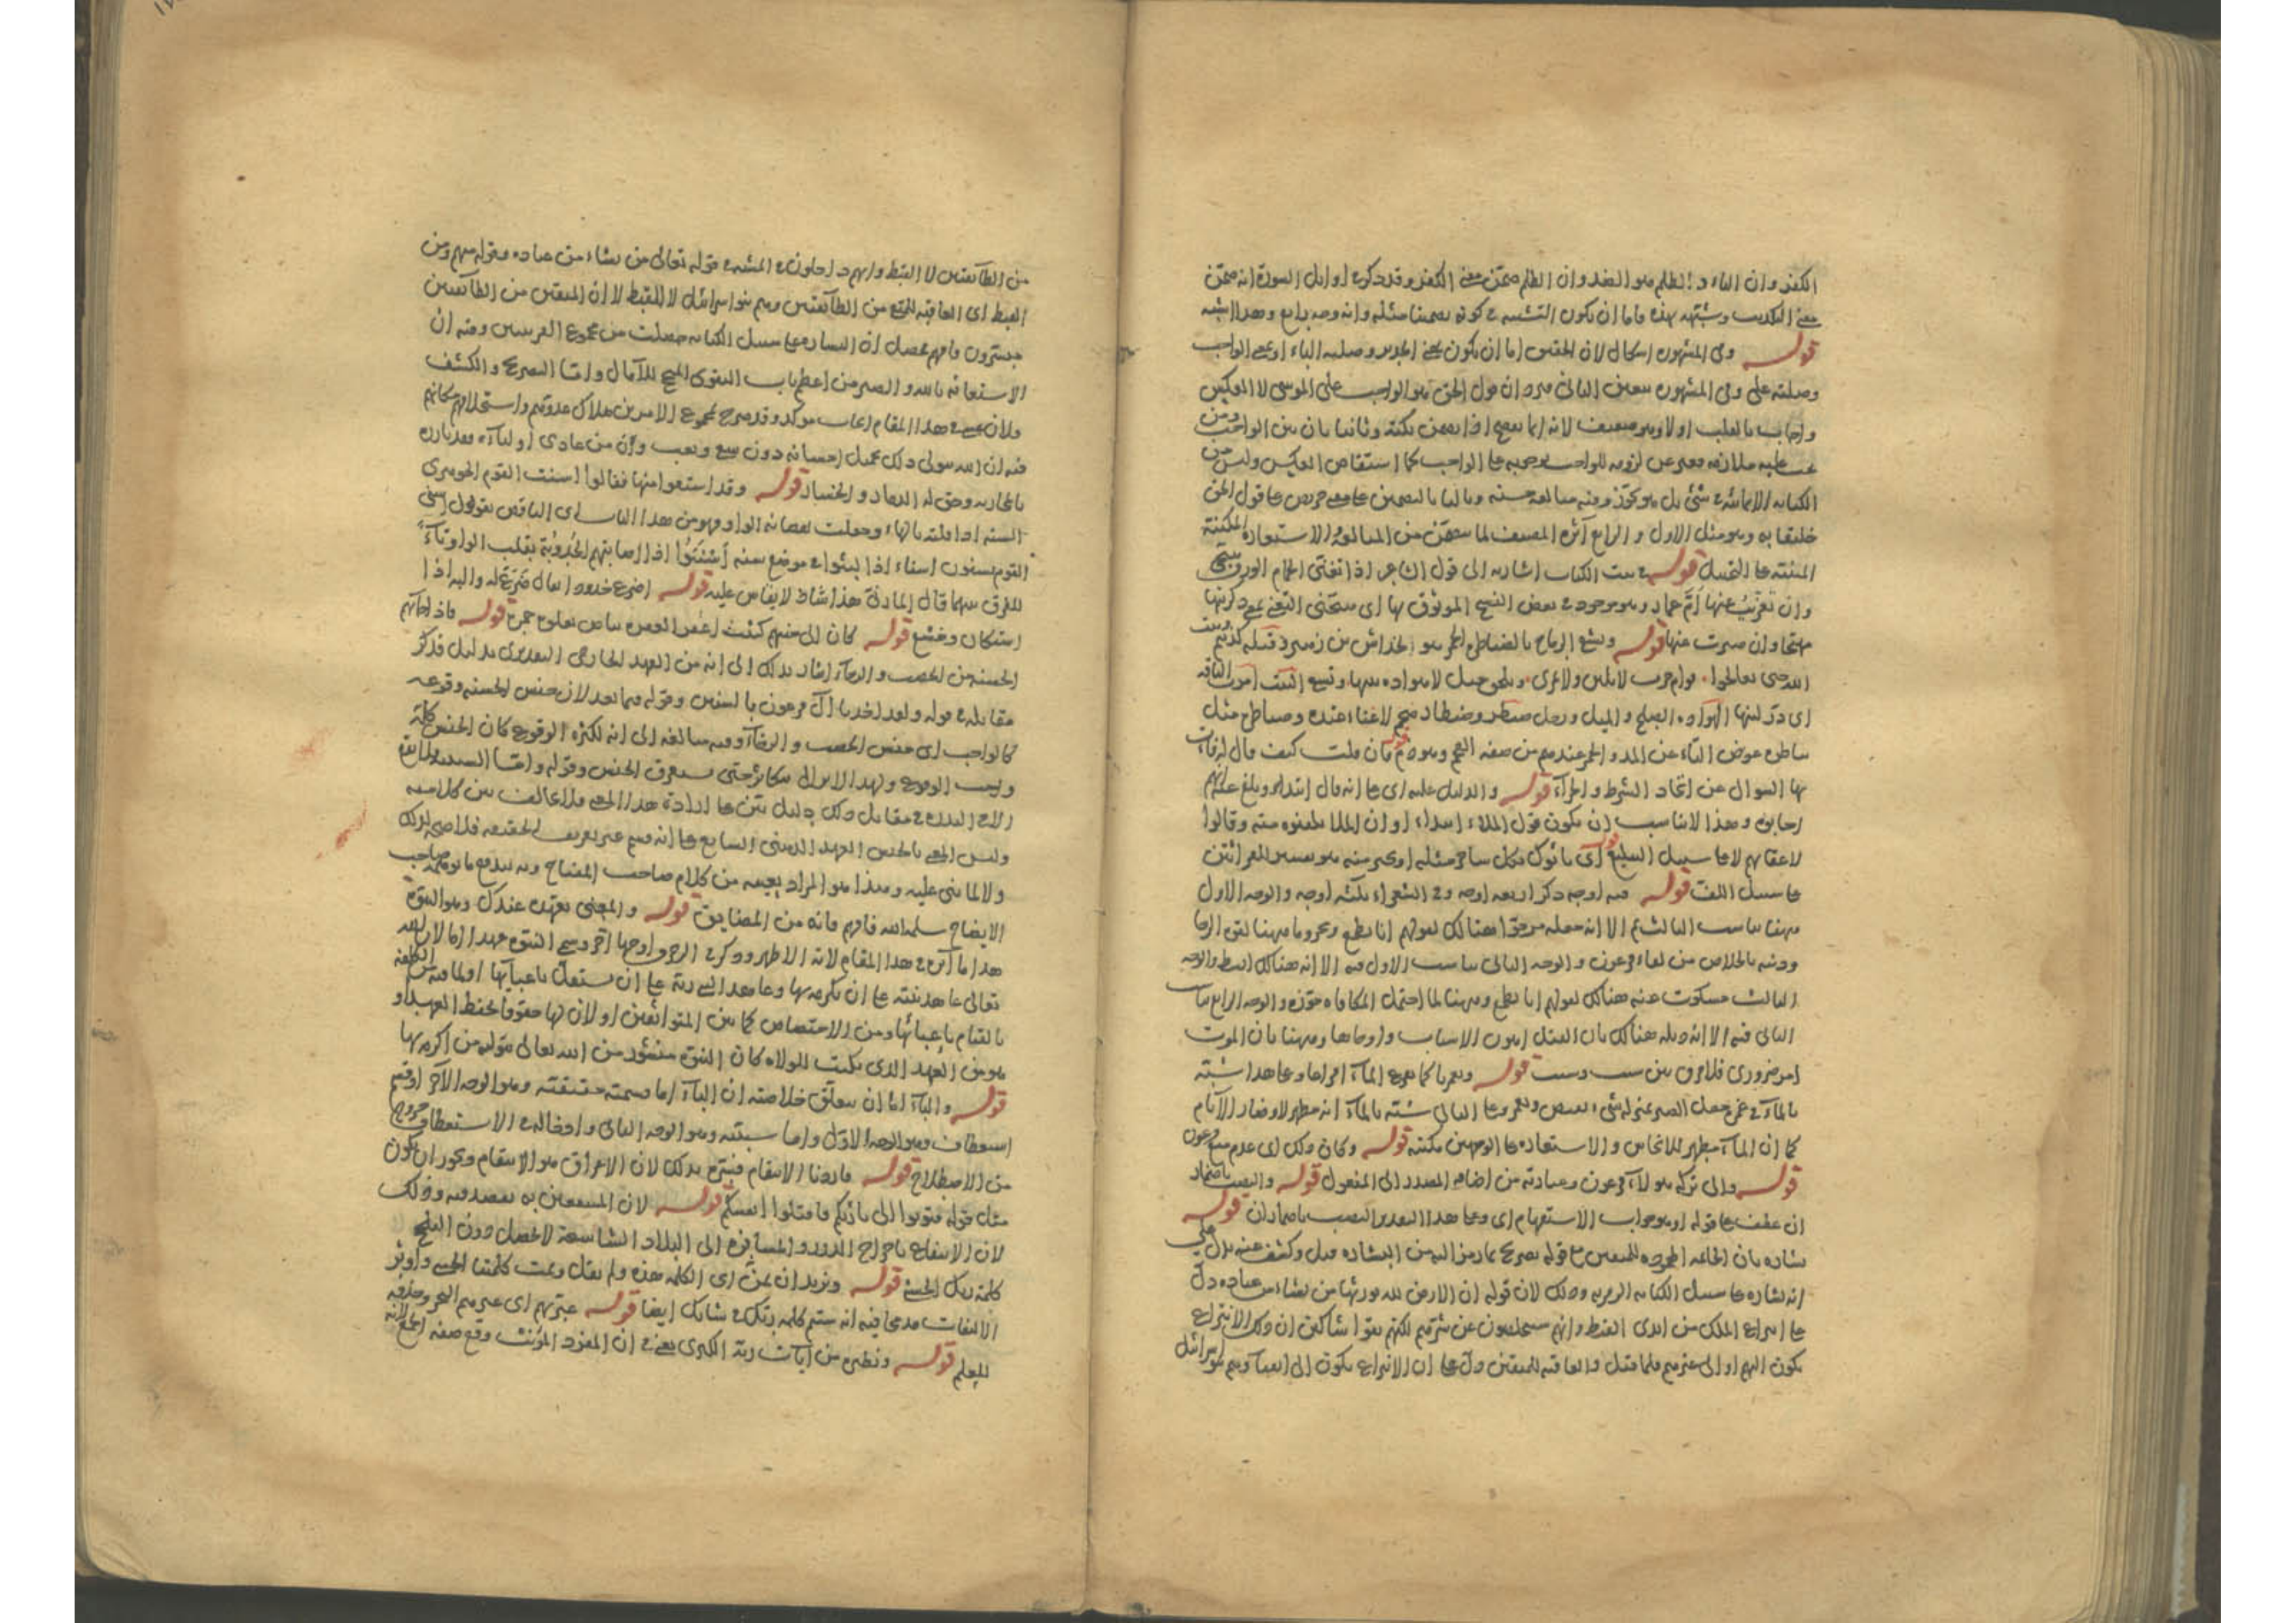 الكفر وان الباء و الظلم هو الضد وان الظلم ضمّن معنى الكفر وقد ذكر في اوايل السورة انه ضمّن
معنى التكذيب وشبهه بهذه فاما ان يكون التشبيه في كونه تضمينا مثله وانه وجه رابع وهذا اشبه
قوله وفي المشهورة اشكال لان الحقيق اما ان يكون بمعنى الجدير وصلته الباء او بمعنى الواجب
وصلته على وفي المشهورة تعين الثاني فيرد ان قول الحق هو الواجب على موسى لا العكس
واجاب بالقلب اولا وهو ضعيف لانه انما يصح اذا تضمن نكتة وثانيا بان بين الواجب ومن
يجب عليه ملازمة فعبر عن لزومه للواجب بوجوبه على الواجب كما استفاض العكس وليس من
الكناية الايمائية في شئ بل هو تجوّز وفيه مبالغة حسنة وثالثا بالتضمين على معنى حريص على قول الحق
خليقا به وهو مثل الاول والرابع آثره المصنف لما تضمن من المبالغة والاستعارة المكنية
المبنية على التخييل قوله بيت الكتاب اشارة الى قول الشاعر اذا تغنى الحمام الورق هيّجني
وان تغرّبت عنها امّ عمار وهو موجود في بعض النسخ الموثوق بها اي هيّجني التغني بمعنى ذكرنيها
مهتجا وان صبرت عنها قوله وتشقى الرماح بالضياطرة الحمر هو لخداش بن زهير قبله كذبتم وبيت
الله حتى تعالجوا قوادم حرب لا تلين ولا تمري وتلحق خيل لا هوادة بينها وتشقى البيت امرت الناقة
اي درّ لبنها الهوادة الصلح والميل ورجل ضيطر وضيطار ضخم لا غناء عنده وضياطرة مثل
بياطرة عوض التاء عن المد والحمر عندهم من صفة العجم وهو ذم فان قلت كيف قال له فأت
بها السؤال عن اتحاد الشرط والجزاء قوله والدليل عليه اي على انه قال ابتداء وبلغ عنه انهم
اجابوه وهذا لا يناسب ان يكون قول الملاء ابتداء او ان الملا بلغوه منه وقالوا
لاعقابهم لا على سبيل التبليغ قوله اي يأتوك بكل ساحر مثله او بخير منه هو تفسير القراءتين
على سبيل اللف قوله فيه اوجه ذكر اربعة اوجه وفي الشعراء ثلثة اوجه والوجه الاول
ههنا يناسب الثالث ثم الا انه جعله هنالك لقولهم انا نطمع وههنا لقوة الرجا
وشبه بالخلاص من لقاء فرعون والوجه الثاني يناسب الاول فيه الا انه هنالك ابسط والوجه
الثالث مسكوت عنه هنالك لقولهم انا نطمع وههنا لما احتمل المكافاة جوّزه والوجه الرابع يناسب
الثاني فيه الا انه هنالك بان القتل اهون الاسباب وارجاها وههنا بان الموت
امر ضروري فلا فرق بين سبب وسبب قوله ويغمرنا كما يفرغ الماء افراغا وعلى هذا شبّه
بالماء في غمره جعل الصبر بمنزلة شئ يفيض ويغمر وعلى الثاني شبّه بالماء انه مطهر لاوضار الآثام
كما ان الماء مطهر للانجاس والاستعارة على الوجهين مكنية قوله وكان ذلك اي عدم منع فرعون
قوله والى تركه هؤلاء فرعون وعبادته من اضافة المصدر الى المفعول قوله والنصب باضمار
ان عطف على قوله او هو جواب الاستفهام اي وعلى هذا التقدير النصب باضمار ان قوله
بشارة بان الخاتمة المحمودة للمتقين مع قوله تصريح بما رمز اليه من البشارة قبل وكشف عنه يدل على
انه بشارة على سبيل الكناية الرمزية وذلك لان قوله ان الارض لله يورثها من يشاء من عباده دل
على انتزاع الملك من ايدي القبط وانهم سيخلصون عن شرهم لكنهم بقوا شاكين ان ذلك الانتزاع
يكون اليهم او الى غيرهم فلما قيل والعاقبة للمتقين دل على ان الانتزاع يكون الى اتقياء وهم بنو اسرائيل
من الطائفتين لا القبط وانهم داخلون في المشية قوله تعالى من يشاء من عباده وقوله منهم ومن
القبط اي العاقبة للمتقي من الطائفتين وهم بنو اسرائيل لا للقبط لا ان المتقين من الطائفتين
مبشرون فافهم فحصل ان البشارة على سبيل الكناية حصلت من مجموع القرينتين وفيه ان
الاستعانة بالله والصبر من اعظم باب التقوى المنجح للآمال واما التصريح والكشف
فلان عسى في هذا المقام ايجاب مؤكد وقد صرح بمجموع الامرين هلاك عدوهم واستخلافهم مكانهم
فيه ان الله مولى ذلك بجميل احسانه دون سعي وتعب وان من عادى اولياءه فقد بارزه
بالمحاربة وحق له الدمار والخسار قوله وقد استقوا منها فقالوا اسنت القوم الجوهري
السنة اذا قلته بالهاء وجعلت نقصانه الواو فهو من هذا الباب اي الناقص تقول اسنى
القوم يسنون اسناء اذا لبثوا في موضع سنة أسْنَتُوا اذا اصابتهم الجدوبة بقلب الواو تاء
للفرق بينهما قال المازني هذا شاذ لا يقاس عليه قوله اضرع خدودا يقال ضرع له واليه اذا
استكان وخشع قوله كان الى جنبهم كنت اعقر قوله فاذا جاءتهم
الحسنة من الخصب والرخاء اشار بذلك الى انه من العهد الخارجي التقديري بدليل ذكر
مقابله في قوله ولقد اخذنا آل فرعون بالسنين وقوله فيما بعد لان جنس الحسنة وقوعه
كالواجب اي جنس الخصب والرخاء وفيه مبالغة الى انه لكثرة الوقوع كان الجنس كله
واجب الوقوع ولهذا لا يزال يتكاثر حتى يستغرق الجنس وقوله واما السيئة فلا يقع
الا في الندرة في مقابل ذلك دليل بيّن على ارادة هذا المعنى فلا تخالف بين كلاميه
وليس المعنى بالجنس العهد الذهني الشايع على انه قسم عبر تعريف الحقيقة فلا صحة لذلك
ولا لما بني عليه وهذا هو المراد بعينه من كلام صاحب المفتاح وبه يندفع ما توهمه صاحب
الايضاح سلمه الله فافهم فانه من المضايق قوله والمعنى بعهده عندك وهو النبوة
هذا ما آثره في هذا المقام لانه الاظهر وذكر في الزخرف اوجها اخر وسمى النبوة عهدا اما لان الله
تعالى عاهد نبيه على ان يكرمه بها وعاهد النبي ربه على ان يستقل باعبائها او لما فيه من الكلفة
بالقيام باعبائها ومن الاختصاص كما بين المتواثقين او لان لها حقوقا تحفظ العهد او
هو من العهد الذي يكتب للولاة كان النبوة منشور من الله تعالى بتولية من اكرمه بها
قوله والباء اما ان يتعلق خلاصته ان الباء اما قسمية حقيقية وهو الوجه الآخر او قسم
استعطاف وهو الوجه الاول واما سببية وهو الوجه الثاني وادخاله في الاستعطاف خروج
من الاصطلاح قوله فاردنا الانتقام فسّره بذلك لان الاغراق هو الانتقام ويجوز ان يكون
مثل قوله فتوبوا الى بارئكم فاقتلوا انفسكم قوله لان المستنفعين به يقصدونه وذلك
لان الانتفاع باخراج الدرر والمسافرة الى البلاد الشاسعة لا يحصل دون الملح
كلمة ربك الحسنى قوله ونريد ان نمنّ اي الكلمة هذه ولم يقل وتمت كلمتنا الحسنى واوثر
الالتفات مدمجا فيه انه ستتم كلمة ربك في شانك ايضا قوله عبرتهم اي عبر بهم البحر وحذفه
للعلم قوله ونظيره من آيات ربه الكبرى يعني في ان المفرد المؤنث وقع صفة الجمع لانه